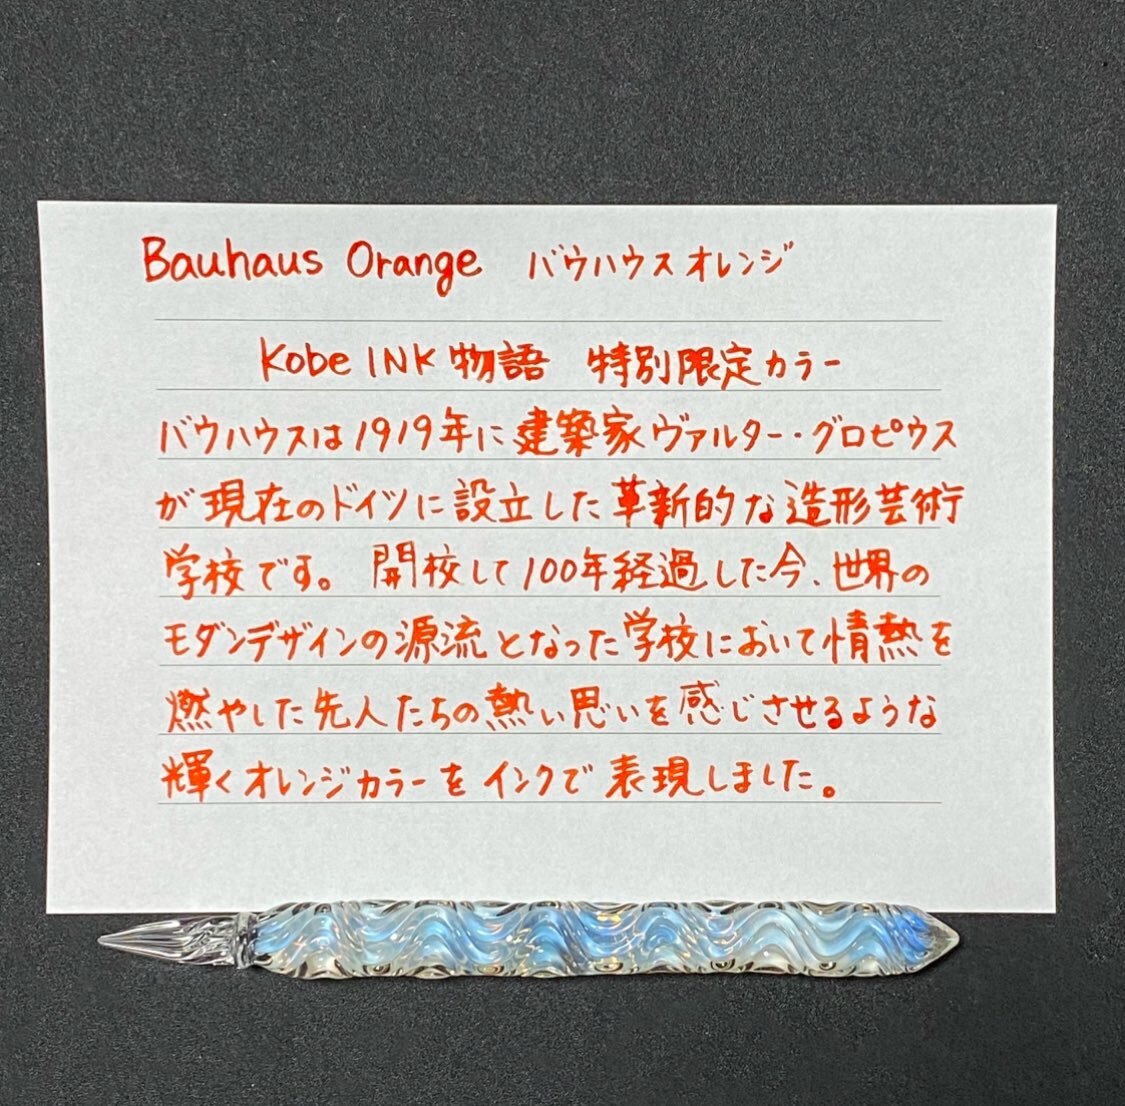 Bauhaus Orange バウハウスオレンジ
Kobe INK物語 特別限定カラー
バウハウスは1919年に建築家ヴァルター・グロピウス
が現在のドイツに設立した革新的な造形芸術
学校です。開校して100年経過した今、世界の
モダンデザインの源流となった学校において情熱を
燃やした先人たちの熱い思いを感じさせるような
輝くオレンジカラーをインクで表現しました。